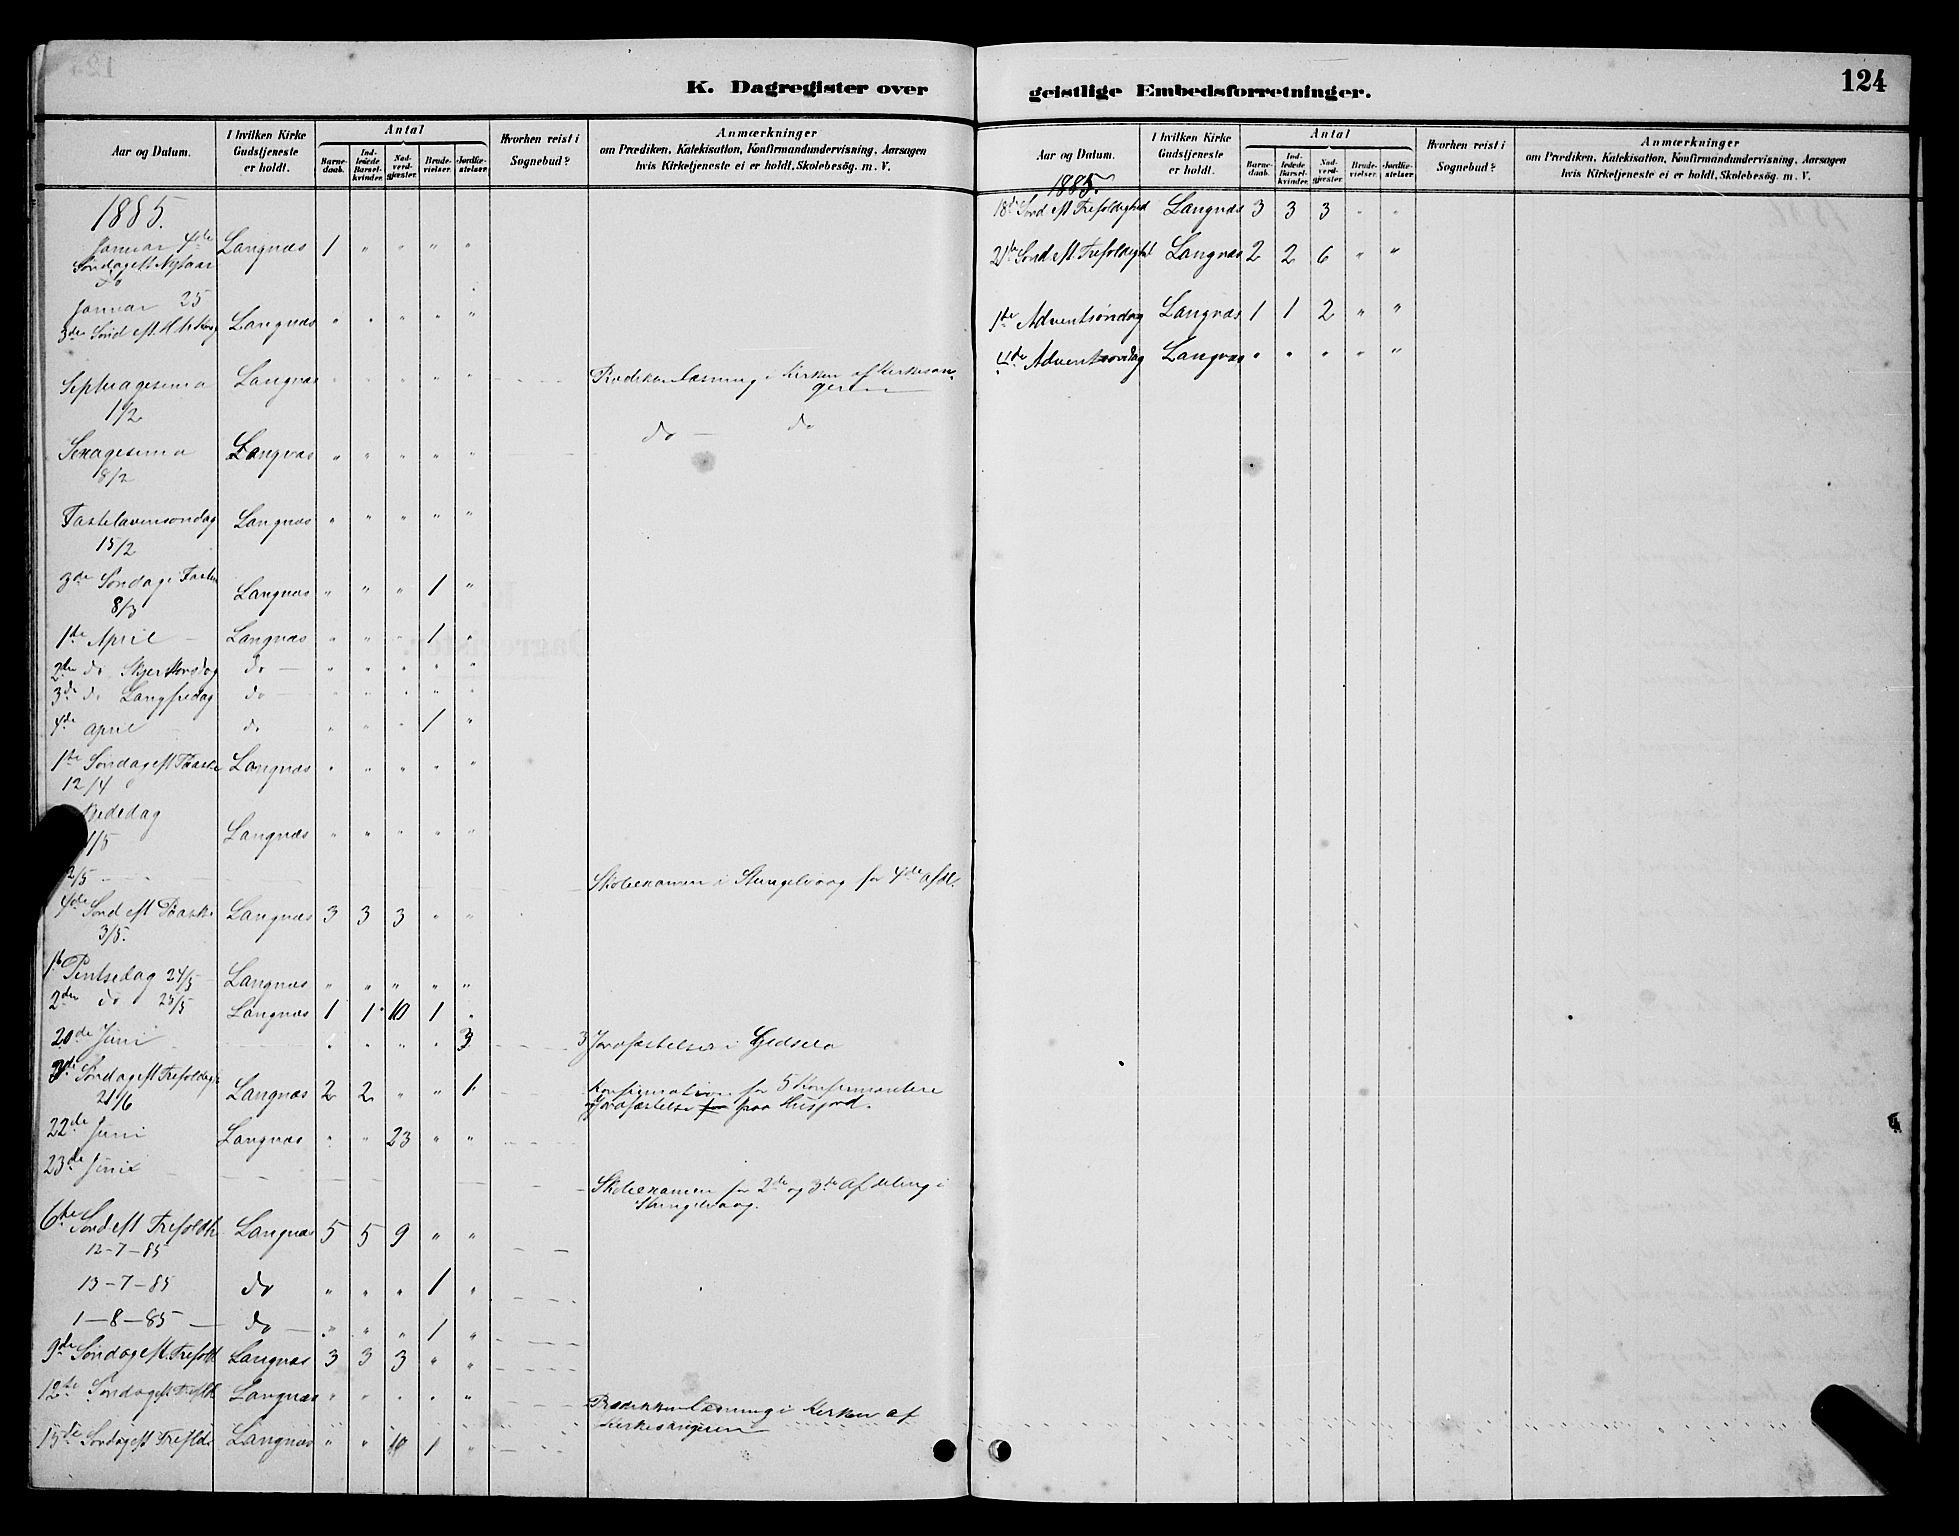 K. Dagregister over
Aar og Datum. | I hvilken Kirke Gudstjeneste er holdt. | Antal | Barnedaab. | Indledede Barselkvinder. | Nadverdgjæster. | Brudevielser. | Jordfæstelser. | Hvorhen reist i Sognebud? | Anmærkninger om Prædiken, Katekisation, Konfirmandundervisning, Aarsagen hvis Kirketjeneste ei er holdt, Skolebesög. m. V.
1885.
Januar 4de Langnæs 1 " " " "
Søndag eft Nytaar
do
Januar 25
3die Sønd eft. H. 3 Kong Langnæs " " " " "
Septuagesima Langnæs " " " " " Prædikenlæsning i Kirken af Kirkesan-
1/2 geren
do — do
Sexagesima Langnæs " " " " "
8/2
Fastelavensøndag Langnæs " " " " "
15/2
3de Søndag i Fasten Langnæs " " " 1 "
8/3
1te April — Langnæs " " " 1 "
2den do Skjertorsdag do — " " " " "
3de do Langfredag do " " " " "
4de april do " " " 1 "
1te Søndag eft Paaske Langnæs " " " " "
12/4
Bededag
1/5 Langnæs " " " " "
2/5 — Skoleexamen i Stangelvaag for 4de afdl.
4de Sønd eft Paaske Langnæs 3 3 3 " "
3/5.
1te Pintsedag 24/5 Langnæs " " " " "
2den do 25/5 Langnæs 1 1 10 1 "
20de Juni " " " " 3 3 Jordfæstelser i
3de Søndag eft Trefoldigh Langnæs 2 2 " " 1 Konfirmation for 5 Konfirmantere
21/6 og Jordfæstelse for paa Husjord.
22de Juni Langnæs " " 23 " "
23de Juni
Skoleexamen for 2de og 3de Afdeling i
Stangelvaag.
6te Sønd eft Trefoldh Langnæs 5 5 9 " "
12-7-85
13-7-85 do " " " 1 "
1-8-85 — do — " " " 1 "
9de Søndag eft. Trefold Langnæs 3 3 3 " "
12te Søndag eft Trefldh Langnæs " " " " "
Prædikkenlæsning i Kirken af
Kirkesangeren
15de Søndag eft Trefldh Langnæs " " 10 1 "
geistlige Embedsforretninger.
124
Aar og Datum. | I hvilken Kirke Gudstjeneste er holdt. | Antal | Barnedaab. | Indledede Barselkvinder. | Nadverdgjæster. | Brudevielser. | Jordfæstelser. | Hvorhen reist i Sognebud? | Anmærkninger om Prædiken, Katekisation, Konfirmandundervisning, Aarsagen hvis Kirketjeneste ei er holdt, Skolebesög. m. V.
1885.
18de Sønd eft Trefoldighed Langnæs 3 3 3 " "
21de Sønd eft. Trefoldighd Langnæs 2 2 6 " "
1te Adventsøndag Langnæs 1 1 2 " "
4de Adventsøndag Langnæs " " " " "